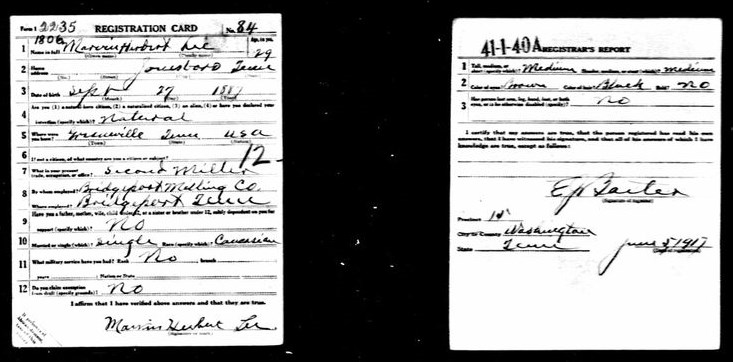 Form 1 2235 REGISTRATION CARD No. 84
1806
1 Name in full Marvin Herbert Lee Age, in yrs. 29
(Given name) (Family name)
2 Home address Jonesboro Tenn
(No.) (Street) (City) (State)
3 Date of birth Sept 27 1887
(Month) (Day) (Year)
4 Are you (1) a natural-born citizen, (2) a naturalized citizen, (3) an alien, (4) or have you declared your
intention (specify which)? Natural
5 Where were you born? Greeneville Tenn USA
(Town) (State) (Nation)
6 If not a citizen, of what country are you a citizen or subject?
12
7 What is your present trade, occupation, or office? Second Miller
8 By whom employed? Bridgeport Milling Co.
Where employed? Bridgeport Tenn
9 Have you a father, mother, wife, child under 12, or a sister or brother under 12, solely dependent on you for
support (specify which)? No
10 Married or single (which)? Single Race (specify which)? Caucasian
11 What military service have you had? Rank No branch
years Nation or State
12 Do you claim exemption from draft (specify grounds)? No
I affirm that I have verified above answers and that they are true.
Marvin Herbert Lee
41-1-40 A REGISTRAR'S REPORT
1 Tall, medium, or short (specify which)? Medium Slender, medium, or stout (which)? medium
2 Color of eyes? Brown Color of hair? Black Bald? No
3 Has person lost arm, leg, hand, foot, or both
eyes, or is he otherwise disabled (specify)? No
I certify that my answers are true, that the person registered has read his own
answers, that I have witnessed his signature, and that all of his answers of which I have
knowledge are true, except as follows:
(Signature of registrar)
Precinct
City or County Washington
State Tenn June 5, 1917